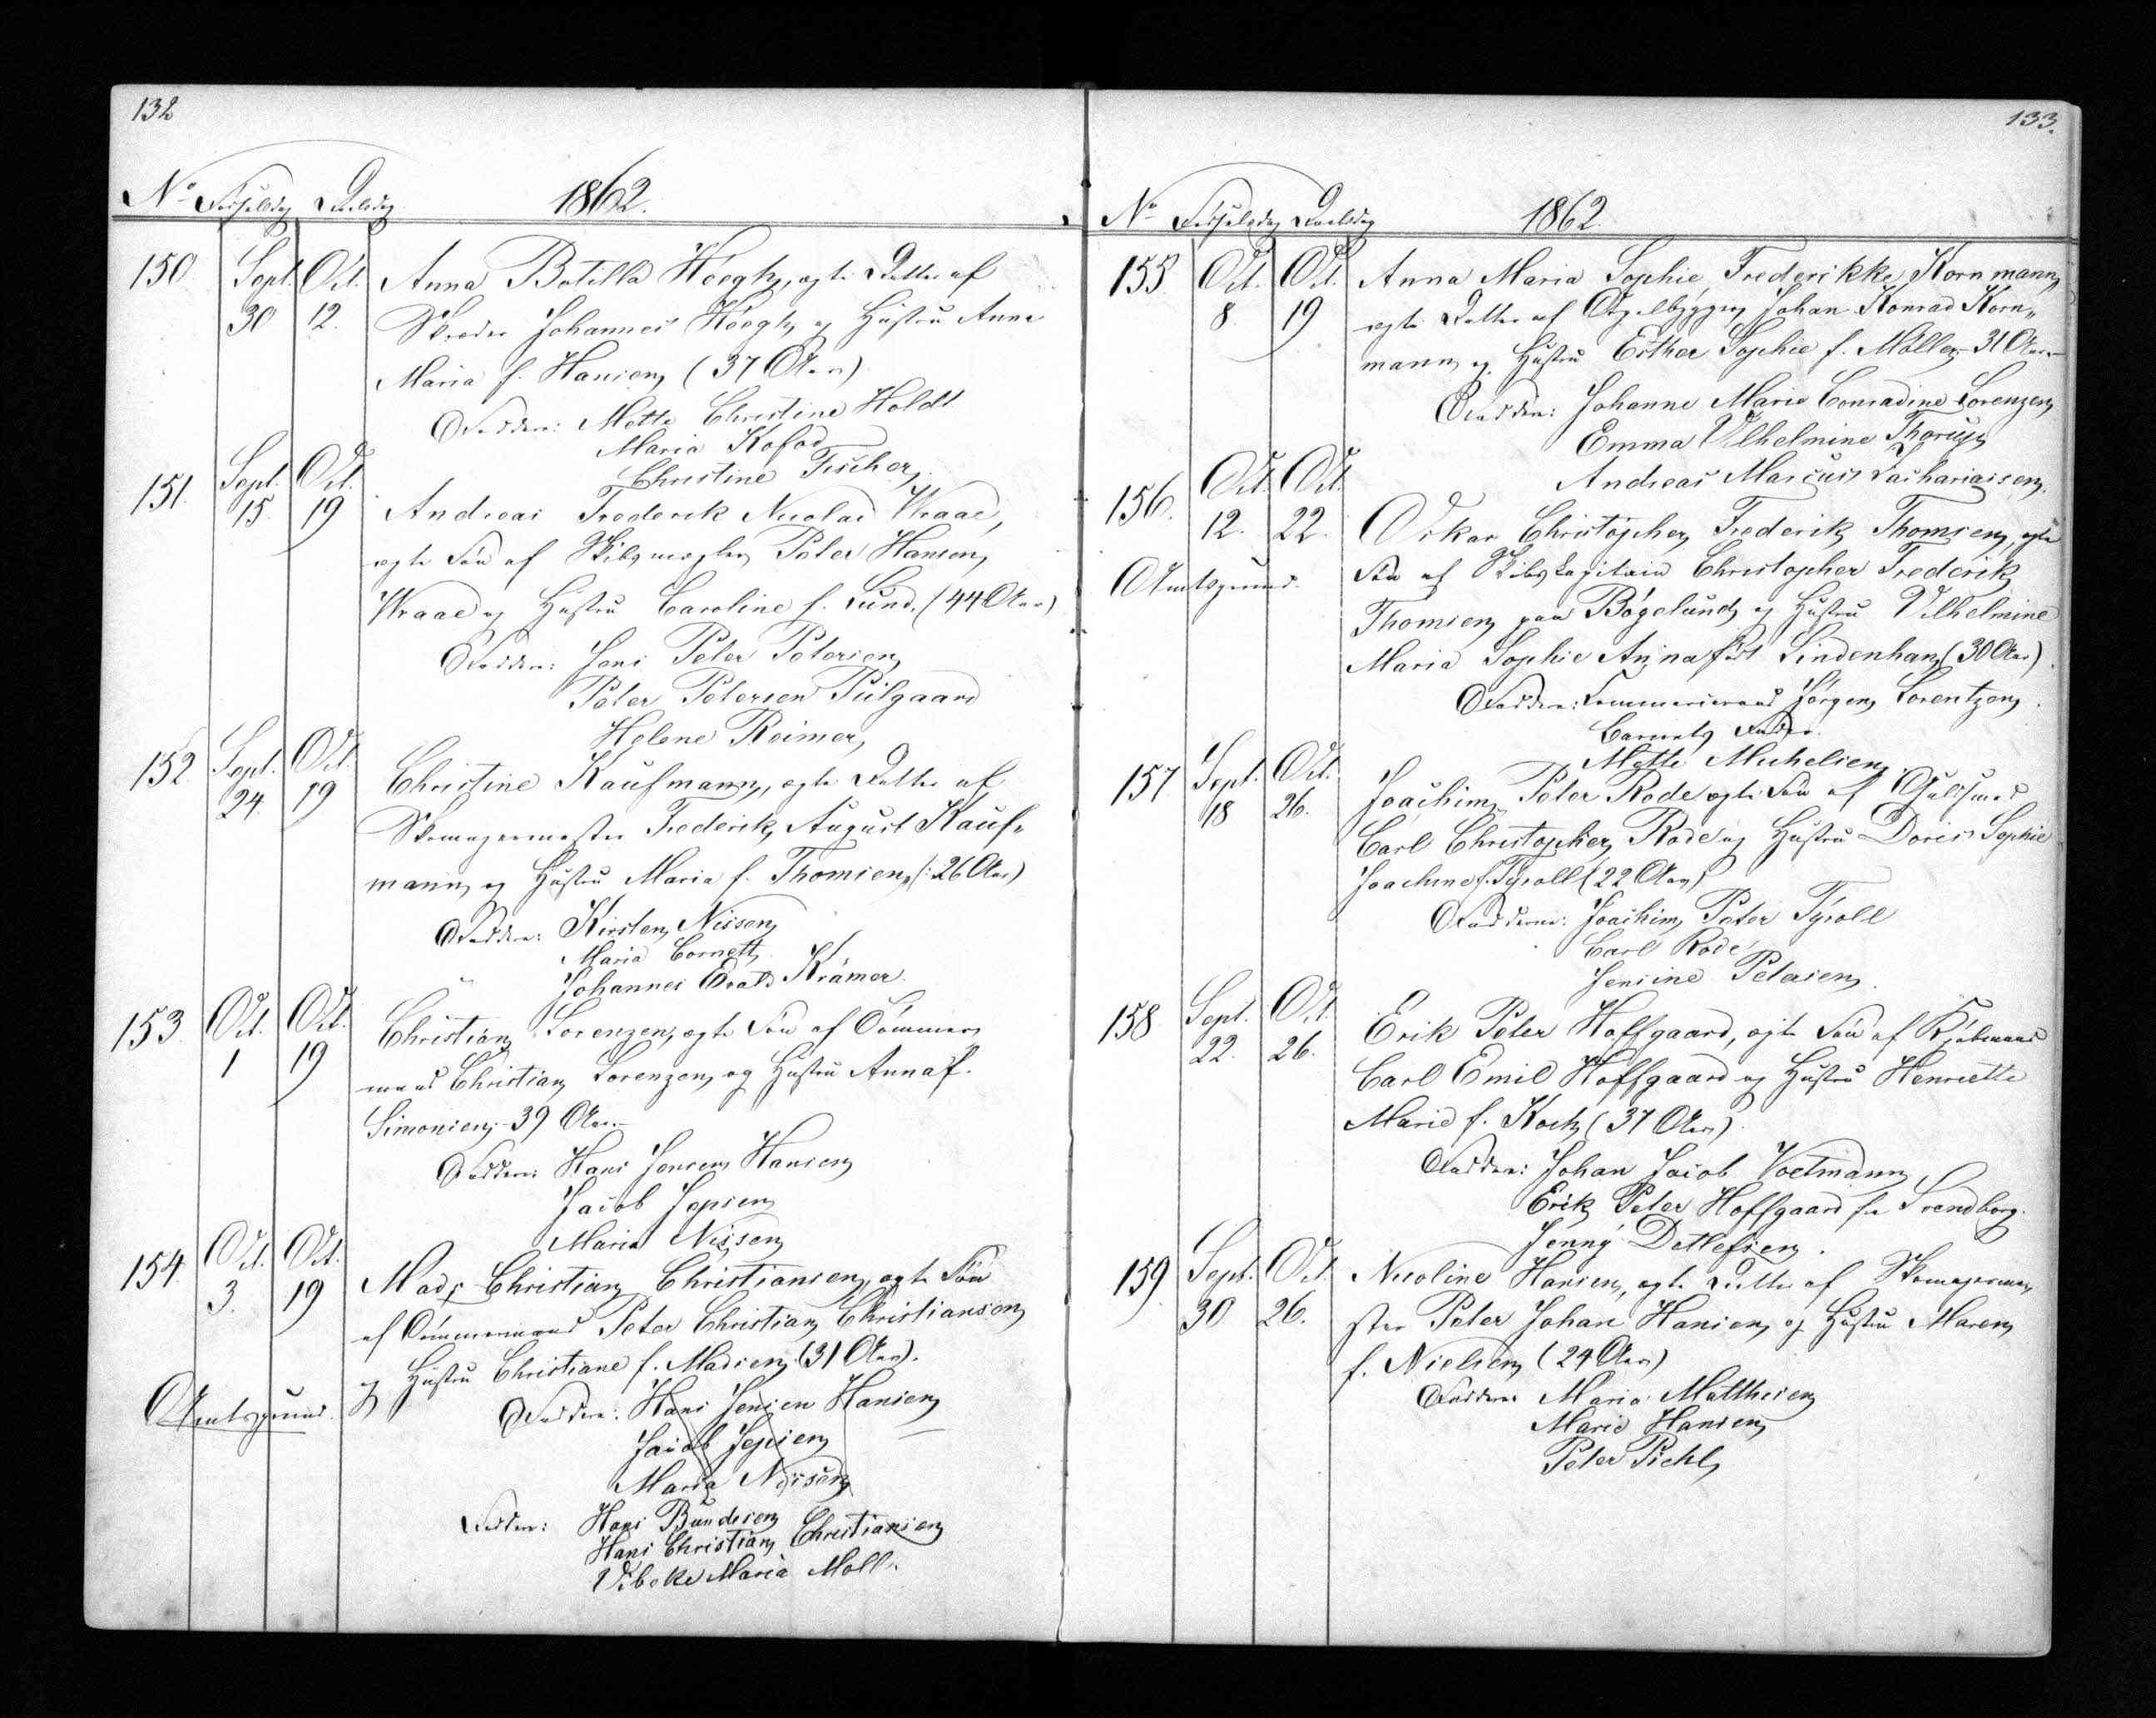 132
No Fødselsdag Daabsdag 1862.
150. Sept. Oct. Anna Botilla Höegh, ægte Datter af
30 12. Skræder Johannes Höegh og Hustru Anna
Maria f. Hansen, (37 Aar)
Faddere: Mette Christine Holdt
Maria Kofod
Christine Fischer,
151. Sept. Oct.
15. 19 Andreas Frederik Nicolai Kraae,
ægte Søn af Skibsmægler Peter Hansen
Kraae og Hustru Caroline f. Lund, (44 Aar)
Faddere: Jens Peter Petersen
Peter Petersen Piilgaard
Helene Reimer,
152. Sept. Oct. Christine Kaufmann, ægte Datter af
24. 19 Skomagermester Frederik August Kauf-
mann og Hustru Maria f. Thomsen, (26 Aar)
Faddere: Kirsten Nissen
Maria Cornett
Johannes Krämer.
153. Oct. Oct. Christian Lorenzen, ægte Søn af Tömmer-
1 19 mand Christian Lorenzen, og Hustru Anna f.
Simonsen, 39 Aar.
Faddere: Hans Jensen Hansen
Jacob Jepsen
Maria Nissen
154. Oct. Oct. Mads Christian Christiansen, ægte Søn
3. 19 af Tömmermand Peter Christian Christiansen
og Hustru Christiane f. Madsen, (31 Aar).
Amtsgrund. Faddere: Hans Jensen Hansen
Jacob Jepsen
Maria Nissen
Faddere: Hans Bundesen
Hans Christian Christiansen
Vibeke Maria Moll.
133.
No Fødselsdag Daabsdag 1862.
155 Oct. Oct. Anna Maria Sophie Frederikke Kornmann,
8. 19 ægte Datter af Orgelbygger Johan Konrad Korn-
mann og Hustru Esther Sophie f. Møller, 31 Aar.
Faddere: Johanne Marie Conradine Lorenzen
Emma Vilhelmine Thorup
Andreas Marcus Zachariassen.
156. Oct. Oct.
12. 22. Oskar Christopher Frederik Thomsen, ægte
Amtsgrund. Søn af Skibskapitain Christopher Frederik
Thomsen paa Bøgelund, og Hustru Vilhelmine
Maria Sophie Anna født Lindenhan, (30 Aar).
Faddere: Kammerraad Jørgen Lorentzen,
Barnets Fader.
Mette Michelsen
157 Sept. Oct. Joachim Peter Rode ægte Søn af Guldsmed
18 26. Carl Christopher Rode og Hustru Doris Sophie
Joachine f. Tyroll (22 Aar)
Fadderne: Joachim Peter Tyroll
Carl Rode
Jensine Petersen
158 Sept. Oct. Erik Peter Hoffgaard, ægte Søn af Kjøbmand
22. 26. Carl Emil Hoffgaard og Hustru Henriette
Marie f. Koch, (37 Aar).
Faddere: Johan Jacob Voetmann
Erik Peter Hoffgaard fra Svendborg.
Jenny Detlefsen.
159 Sept. Oct. Nicoline Hansen, ægte Datter af Skomagerme-
30 26. ster Peter Johan Hansen, og Hustru Maren
f. Nielsen (24 Aar)
Faddere: Maria Matthiesen
Marie Hansen
Peter Piehl,